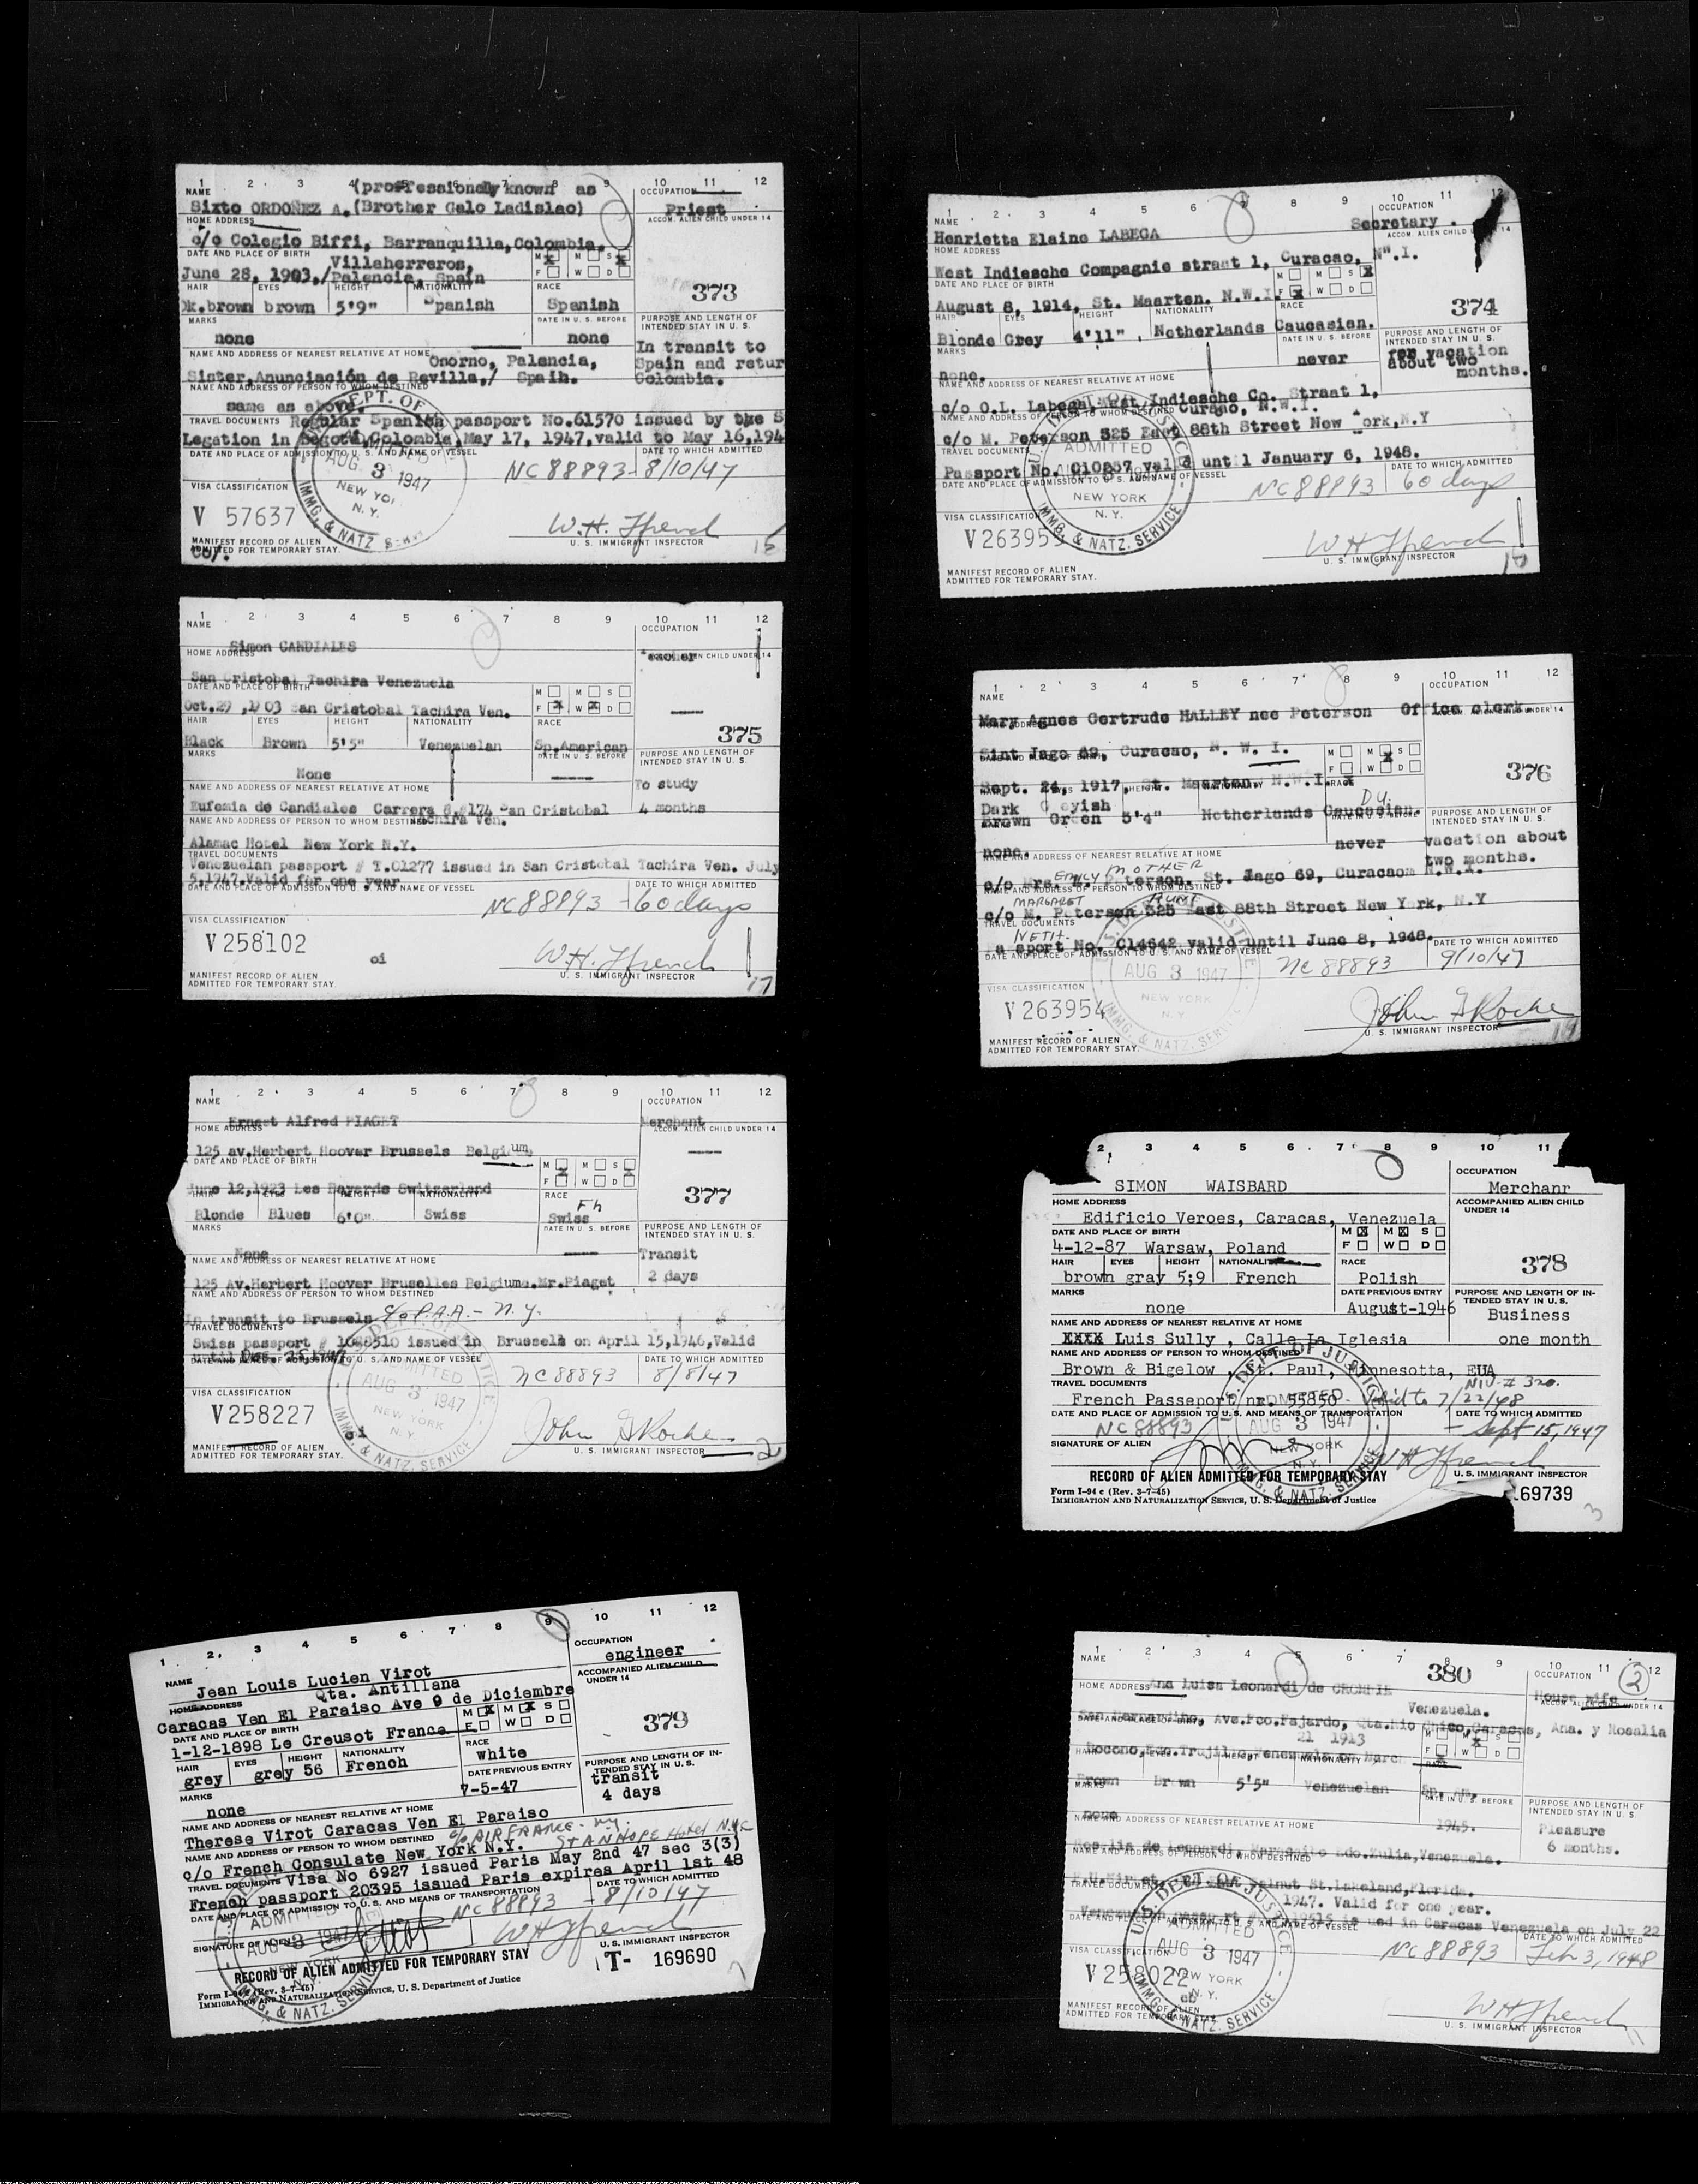 1 2 3 4 5 6 7 8 9 10 11 12
NAME (proffessionally known as OCCUPATION
Sixto ORDOÑEZ A. (Brother Galo Ladislao) Priest
HOME ADDRESS ACCOM. ALIEN CHILD UNDER 14
c/o Colegio Biffi, Barranquilla, Colombia.
DATE AND PLACE OF BIRTH Villaherreros, M X M S X
June 28, 1903./Palencia, Spain F W D
HAIR EYES HEIGHT NATIONALITY RACE 373
Dk.brown brown 5'9" Spanish Spanish
MARKS DATE IN U. S. BEFORE PURPOSE AND LENGTH OF INTENDED STAY IN U. S.
none none In transit to
NAME AND ADDRESS OF NEAREST RELATIVE AT HOME Osorno, Palencia, Spain and retur
Sister.Anunciación de Revilla,/ Spain. Colombia.
NAME AND ADDRESS OF PERSON TO WHOM DESTINED
same as above.
TRAVEL DOCUMENTS Regular Spanish passport No.61570 issued by the S
Legation in Bogotá, Colombia, May 17, 1947, valid to May 16,194
DATE AND PLACE OF ADMISSION TO U. S. AND NAME OF VESSEL DATE TO WHICH ADMITTED
AUG 3 1947 NC 88893 - 8/10/47
NEW YO
VISA CLASSIFICATION N. Y.
V 57637 W. H. Ffrench
IMMG. & NATZ U. S. IMMIGRANT INSPECTOR
MANIFEST RECORD OF ALIEN
ADMITTED FOR TEMPORARY STAY.
1 2 3 4 5 6 7 8 9 10 11 12
NAME OCCUPATION
Henrietta Elaine LABEGA Secretary.
HOME ADDRESS ACCOM. ALIEN CHILD 14
West Indiesche Compagnie straat 1, Curacao, N.W.I.
DATE AND PLACE OF BIRTH M M S X
August 8, 1914, St. Maarten. N.W.I. F X W D
HAIR EYES HEIGHT NATIONALITY RACE 374
Blonde Grey 4'11" Netherlands Caucasian.
MARKS DATE IN U. S. BEFORE PURPOSE AND LENGTH OF INTENDED STAY IN U. S.
none. never for vacation about two months.
NAME AND ADDRESS OF NEAREST RELATIVE AT HOME
c/o O.L. Labega, West Indiesche Co. Straat 1, Curacao, N.W.I.
NAME AND ADDRESS OF PERSON TO WHOM DESTINED
c/o M. Peterson 325 East 88th Street New York, N.Y
TRAVEL DOCUMENTS ADMITTED
Passport No. C10237 valid until January 6, 1948.
DATE AND PLACE OF ADMISSION TO U. S. AND NAME OF VESSEL DATE TO WHICH ADMITTED
NEW YORK NC 88893 60 days
VISA CLASSIFICATION N. Y.
V 26395 W H Ffrench
IMMG. & NATZ. SERVICE U. S. IMMIGRANT INSPECTOR
MANIFEST RECORD OF ALIEN
ADMITTED FOR TEMPORARY STAY.
1 2 3 4 5 6 7 8 9 10 11 12
NAME OCCUPATION
Simon CANDIALES Teacher
HOME ADDRESS ACCOM. ALIEN CHILD UNDER 14
San Cristobal Tachira Venezuela
DATE AND PLACE OF BIRTH M M S
Oct.29 ,1903 San Cristobal Tachira Ven. F X W X D
HAIR EYES HEIGHT NATIONALITY RACE 375
Black Brown 5'5" Venezuelan Sp.American
MARKS DATE IN U. S. BEFORE PURPOSE AND LENGTH OF INTENDED STAY IN U. S.
None To study
NAME AND ADDRESS OF NEAREST RELATIVE AT HOME
Eufemia de Candiales Carrera 8,#174 San Cristobal 4 months
NAME AND ADDRESS OF PERSON TO WHOM DESTINED Tachira Ven.
Alamac Hotel New York N.Y.
TRAVEL DOCUMENTS
Venezuelan passport # T.01277 issued in San Cristobal Tachira Ven. July
5,1947.Valid for one year
DATE AND PLACE OF ADMISSION TO U. S. AND NAME OF VESSEL DATE TO WHICH ADMITTED
NC 88893 - 60 days
VISA CLASSIFICATION
V 258102 oi W. H. Ffrench
U. S. IMMIGRANT INSPECTOR
MANIFEST RECORD OF ALIEN 17
ADMITTED FOR TEMPORARY STAY.
1 2 3 4 5 6 7 8 9 10 11 12
NAME OCCUPATION
Mary Agnes Gertrude HALLEY nee Peterson Office clerk.
Sint Jago 69, Curacao, N. W. I. M M X S
Sept. 24, 1917, St. Maarten. N.W.I. F X W D
HEIGHT NATIONALITY RACE 376
Dark Greyish Du.
Brown Green 5'4" Netherlands Caucasian.
PURPOSE AND LENGTH OF INTENDED STAY IN U. S.
none. never vacation about two months.
NAME AND ADDRESS OF NEAREST RELATIVE AT HOME
EMILY MOTHER
c/o Mrs. Peterson. St. Jago 69, Curacao N.W.I.
NAME AND ADDRESS OF PERSON TO WHOM DESTINED
MARGARET AUNT
c/o M. Peterson 325 East 88th Street New York, N.Y
TRAVEL DOCUMENTS
NETH.
Passport No. C14642 valid until June 8, 1948.
DATE AND PLACE OF ADMISSION TO U. S. AND NAME OF VESSEL DATE TO WHICH ADMITTED
AUG 3 1947 NC 88893 9/10/47
VISA CLASSIFICATION NEW YORK
V 263954 N. Y. John G Roche
IMMG. & NATZ. SERVICE U. S. IMMIGRANT INSPECTOR
MANIFEST RECORD OF ALIEN
ADMITTED FOR TEMPORARY STAY.
1 2 3 4 5 6 7 8 9 10 11 12
NAME OCCUPATION
Ernest Alfred PIAGET Merchant
HOME ADDRESS ACCOM. ALIEN CHILD UNDER 14
125 av.Herbert Hoover Brussels Belgium
DATE AND PLACE OF BIRTH M X M S X
June 12,1923 Les Bayards Switzerland F W D
HAIR EYES HEIGHT NATIONALITY RACE Fh 377
Blonde Blues 6'0" Swiss Swiss
MARKS DATE IN U. S. BEFORE PURPOSE AND LENGTH OF INTENDED STAY IN U. S.
None Transit
NAME AND ADDRESS OF NEAREST RELATIVE AT HOME
125 Av.Herbert Hoover Bruselles Belgiume.Mr.Piaget 2 days
NAME AND ADDRESS OF PERSON TO WHOM DESTINED
In transit to Brussels c/o P.A.A. - N.Y.
TRAVEL DOCUMENTS
Swiss passport # 1088510 issued in Brussels on April 15,1946,Valid
DATE AND PLACE OF ADMISSION TO U. S. AND NAME OF VESSEL DATE TO WHICH ADMITTED
ADMITTED AUG 3 1947 NC 88893 8/8/47
VISA CLASSIFICATION NEW YORK
V 258227 N. Y. John G Roche
MANIFEST RECORD OF ALIEN U. S. IMMIGRANT INSPECTOR 2
ADMITTED FOR TEMPORARY STAY. IMMG. & NATZ. SERVICE
2 3 4 5 6 7 8 9 10 11
OCCUPATION
SIMON WAISBARD Merchanr
HOME ADDRESS ACCOMPANIED ALIEN CHILD UNDER 14
Edificio Veroes, Caracas, Venezuela
DATE AND PLACE OF BIRTH M X M X S
4-12-87 Warsaw, Poland F W D
HAIR EYES HEIGHT NATIONALITY RACE 378
brown gray 5;9 French Polish
MARKS DATE PREVIOUS ENTRY PURPOSE AND LENGTH OF INTENDED STAY IN U. S.
none August-1946 Business
NAME AND ADDRESS OF NEAREST RELATIVE AT HOME
XXXX Luis Sully , Calle La Iglesia one month
NAME AND ADDRESS OF PERSON TO WHOM DESTINED
Brown & Bigelow , St. Paul, Minnesotta, EUA
TRAVEL DOCUMENTS NIV # 320.
French Passeport nr. 55850 - Valid to 7/22/48
DATE AND PLACE OF ADMISSION TO U. S. AND MEANS OF TRANSPORTATION DATE TO WHICH ADMITTED
NC 88893 AUG 3 1947 - Sept 15, 1947
SIGNATURE OF ALIEN NEW YORK W H Ffrench
RECORD OF ALIEN ADMITTED FOR TEMPORARY STAY U. S. IMMIGRANT INSPECTOR
Form I-94 c (Rev. 3-7-45)
IMMIGRATION AND NATURALIZATION SERVICE, U. S. Department of Justice 169739
3
1 2 3 4 5 6 7 8 9 10 11 12
OCCUPATION
NAME Jean Louis Lucien Virot engineer
HOME ADDRESS Qta. Antillana ACCOMPANIED ALIEN CHILD UNDER 14
Caracas Ven El Paraiso Ave 9 de Diciembre
DATE AND PLACE OF BIRTH M X M X S
1-12-1898 Le Creusot France F W D
HAIR EYES HEIGHT NATIONALITY RACE 379
grey grey 56 French white
MARKS DATE PREVIOUS ENTRY PURPOSE AND LENGTH OF INTENDED STAY IN U. S.
none 7-5-47 transit 4 days
NAME AND ADDRESS OF NEAREST RELATIVE AT HOME
Therese Virot Caracas Ven El Paraiso
NAME AND ADDRESS OF PERSON TO WHOM DESTINED c/o AIR FRANCE - NY.
c/o French Consulate New York N.Y. STANHOPE Hotel N.Y.C
TRAVEL DOCUMENTS Visa No 6927 issued Paris May 2nd 47 sec 3(3)
French passport 20395 issued Paris expires April 1st 48
DATE AND PLACE OF ADMISSION TO U. S. AND MEANS OF TRANSPORTATION DATE TO WHICH ADMITTED
ADMITTED NC 88893 - 8/10/47
SIGNATURE OF ALIEN AUG 3 1947 W H Ffrench
U. S. IMMIGRANT INSPECTOR
RECORD OF ALIEN ADMITTED FOR TEMPORARY STAY T- 169690
Form I-94 c (Rev. 3-7-45)
IMMIGRATION AND NATURALIZATION SERVICE, U. S. Department of Justice
IMMG. & NATZ. SERVICE
1 2 3 4 5 6 7 8 9 10 11 12
NAME 380 OCCUPATION 2
HOME ADDRESS Ana Luisa Leonardi de House wife
Venezuela. ACCOM. ALIEN CHILD UNDER 14
San Bernardino, Ave.Fco.Fajardo, Qta.Rio Chico,Caracas, Ana. y Rosalia
21 1913 M M X S
Bocono,Edo.Trujillo,Venezuela on Marc F X W D
Brown Brown 5'5" Venezuelan Sp. Am.
MARKS DATE IN U. S. BEFORE PURPOSE AND LENGTH OF INTENDED STAY IN U. S.
none 1945. Pleasure
NAME AND ADDRESS OF NEAREST RELATIVE AT HOME 6 months.
Rosalia de Leonardi, Maracaibo Edo.Zulia,Venezuela.
NAME AND ADDRESS OF PERSON TO WHOM DESTINED
Walnut St.Lakeland,Florida.
TRAVEL DOCUMENTS 1947. Valid for one year.
Venezuelan passport issued in Caracas Venezuela on July 22
DATE TO WHICH ADMITTED
VISA CLASSIFICATION AUG 3 1947 NC 88893 Feb 3, 1948
V 25 022 NEW YORK
N. Y. W H Ffrench
MANIFEST RECORD OF ALIEN U. S. IMMIGRANT INSPECTOR
ADMITTED FOR TEMPORARY STAY
U. S. DEPT. OF JUSTICE ADMITTED IMMG. & NATZ. SERVICE